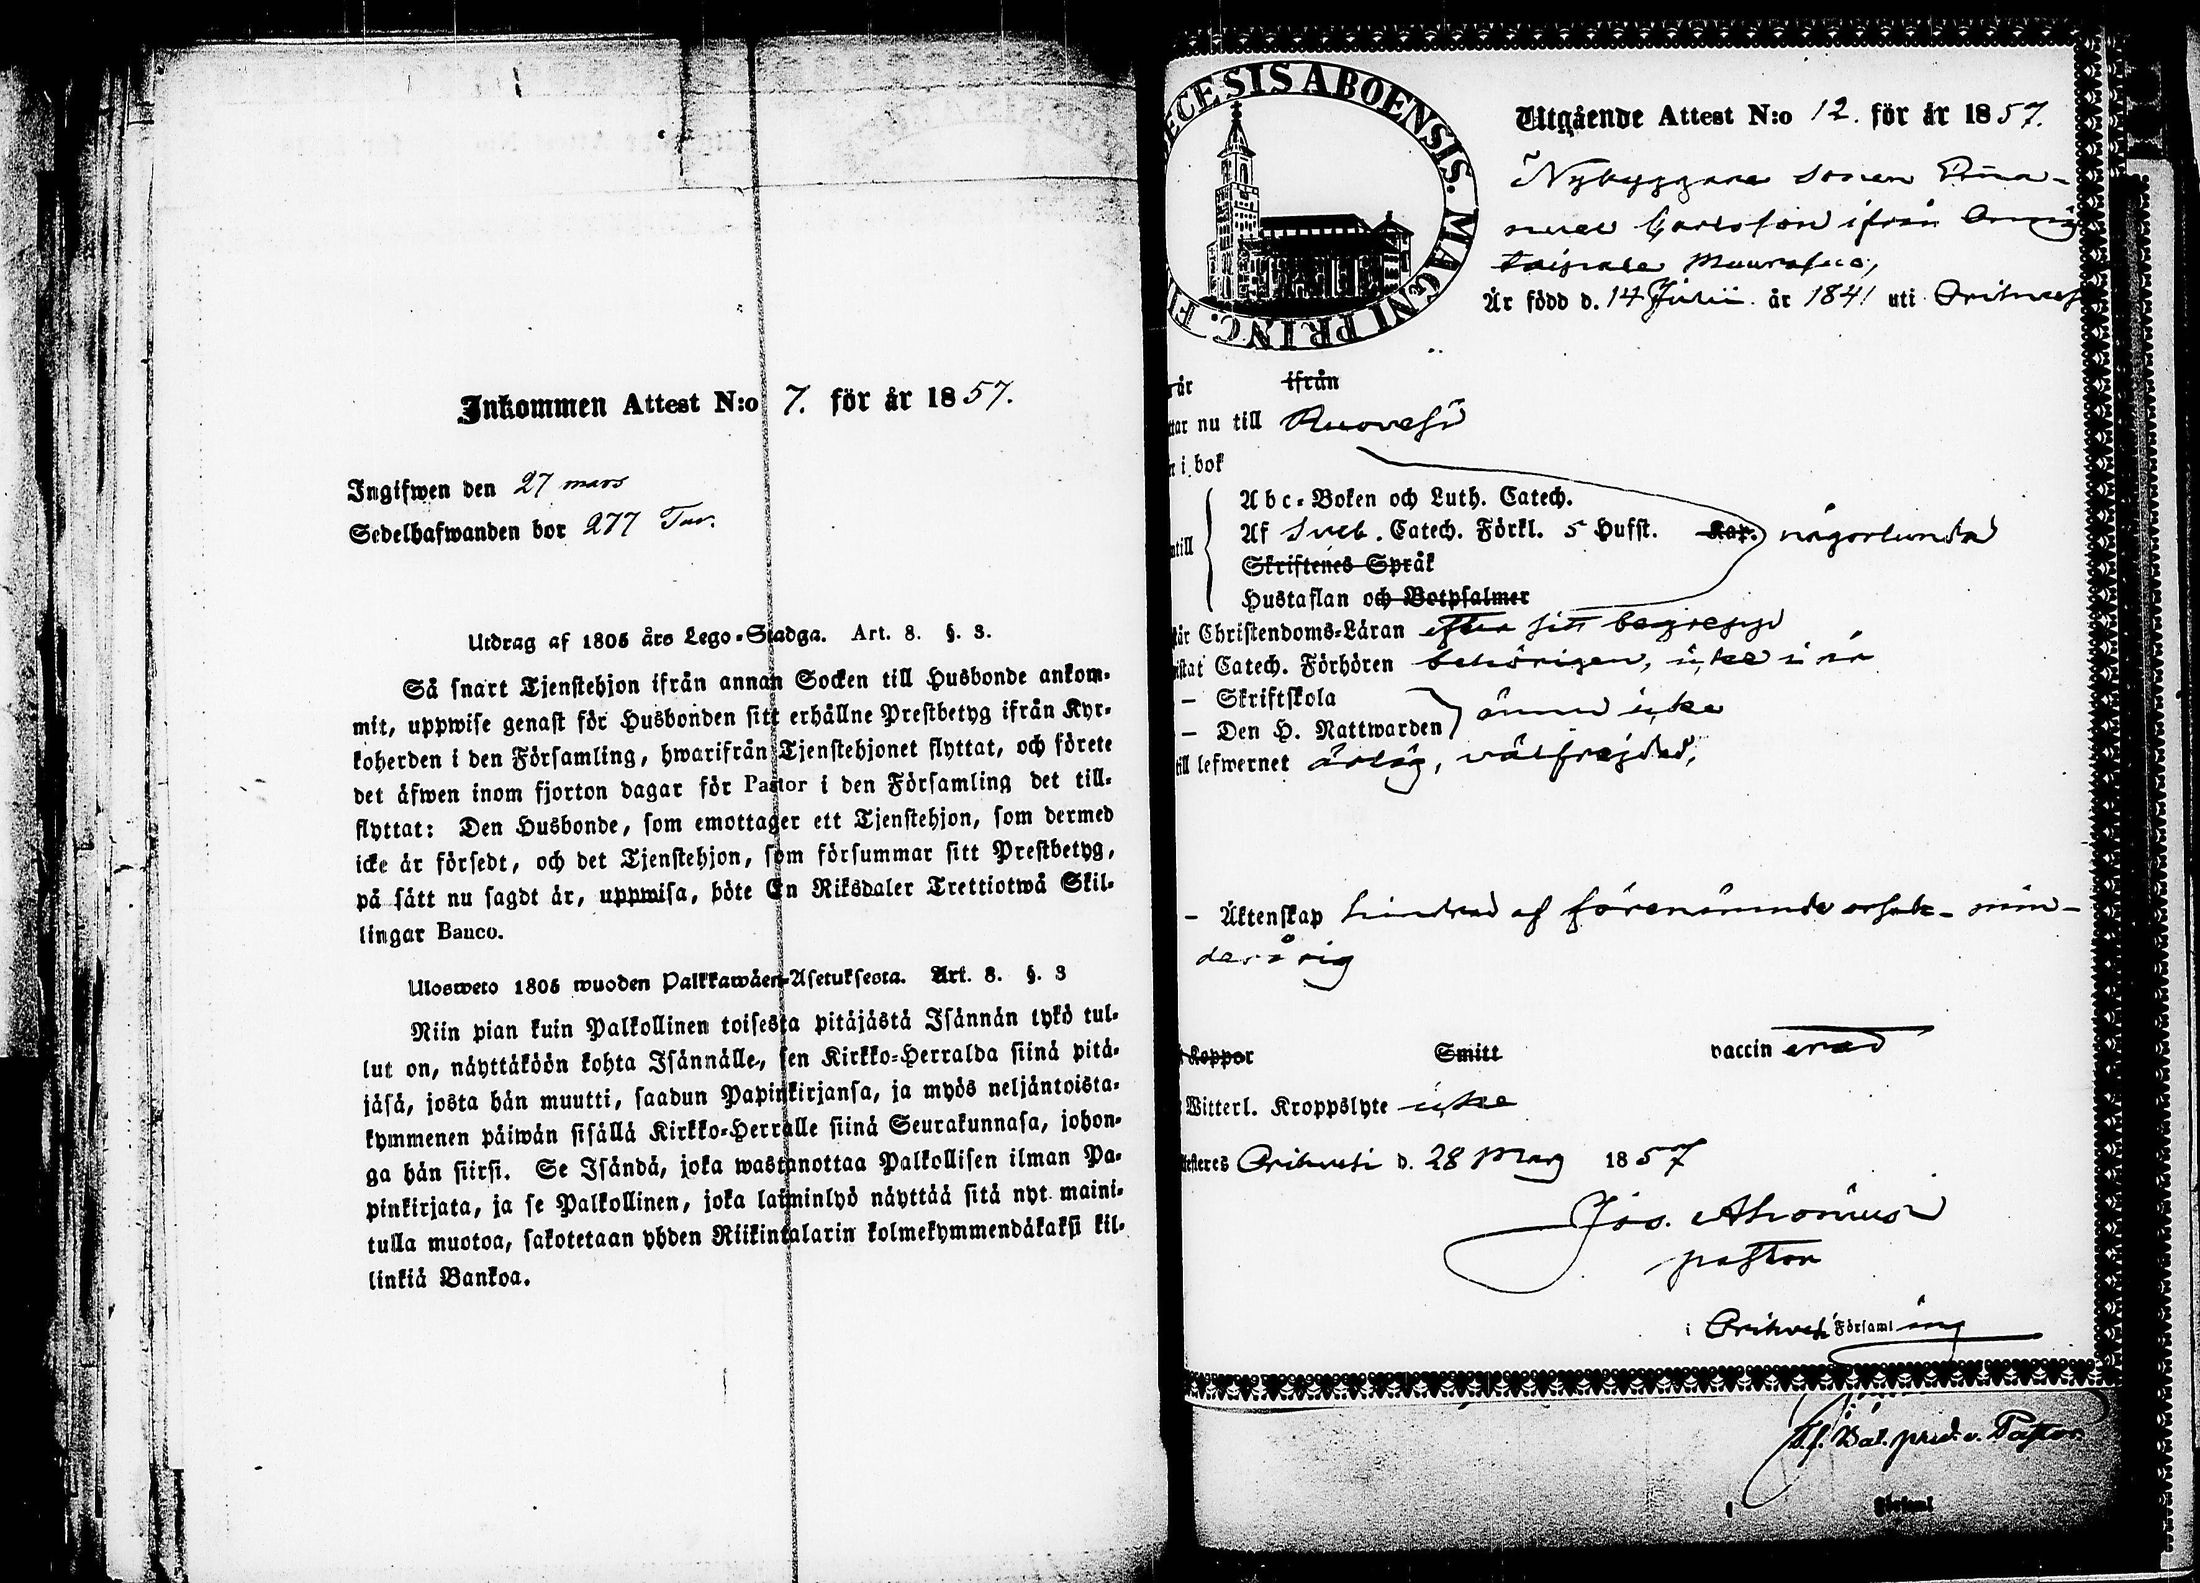 Inkommen Attest N:o 7. för år 1857.
Ingifwen den 27 mars
Sedelhafwanden bor 277 Tav.
Utdrag af 1805 års Lego-Stadga. Art. 8. §. 3.
Så snart Tjenstehjon ifrån annan Socken till Husbonde ankom-
mit, uppwise genast för Husbonden sitt erhållne Prestbetyg ifrån Kyr-
koherden i den Församling, hwarifrån Tjenstehjonet flyttat, och förete
det äfwen inom fjorton dagar för Pastor i den Församling det till-
flyttat: Den Husbonde, som emottager ett Tjenstehjon, som dermed
icke är försedt, och det Tjenstehjon, som försummar sitt Prestbetyg,
på sätt nu sagdt är, uppwisa, böte En Riksdaler Trettiotwå Skil-
lingar Banco.
Ulosweto 1805 wuoden Palkkawäen-Asetuksesta. Art. 8. §. 3
Niin pian kuin Palkollinen toisesta pitäjästä Isännän tykö tul-
lut on, näyttäköön kohta Isännälle, sen Kirkko-Herralda siinä pitä-
jäsä, josta hän muutti, saadun Papinkirjansa, ja myös neljäntoista-
kymmenen päiwän sisällä Kirkko-Herralle siinä Seurakunnasa, johon-
ga hän siirsi. Se Isändä, joka wastanottaa Palkollisen ilman Pa-
pinkirjata, ja se Palkollinen, joka laiminlyö näyttää sitä nyt maini-
tulla muotoa, sakotetaan yhden Riikintalarin kolmekymmendäkaksi kil-
linkiä Bankoa.
ECESIS ABOENSIS. MAGNI PRINC. FI
Utgående Attest N:o 12. för år 1857.
Nybyggare sonen Ema-
nuel Carlsson ifrån
taipale
Är född d. 14 Julii år 1841 uti Orihvesi
år ifrån
tar nu till Ruovesi
i bok
Abc-Boken och Luth. Catech.
Af Sveb. Catech. Förkl. 5 Hufst. Kap. någorlunda
till
Skriftenes Språk
Hustaflan och Botpsalmer
Christendoms-Läran efter sitt begrepp
Catech. Förhören behörigen, icke i år
– Skriftskola
ännu icke
– Den H. Nattwarden
till lefwernet ärlig, välfrejdad,
– Äktenskap hindrad af förenämnde orsak - min-
derårig
Koppor Smitt vaccin erad
Witterl. Kroppslyte icke
testeres Orihvesi d. 28 Mars 1857
Jos.
pastor
i Orihvesi Församling
Pastor
Församl